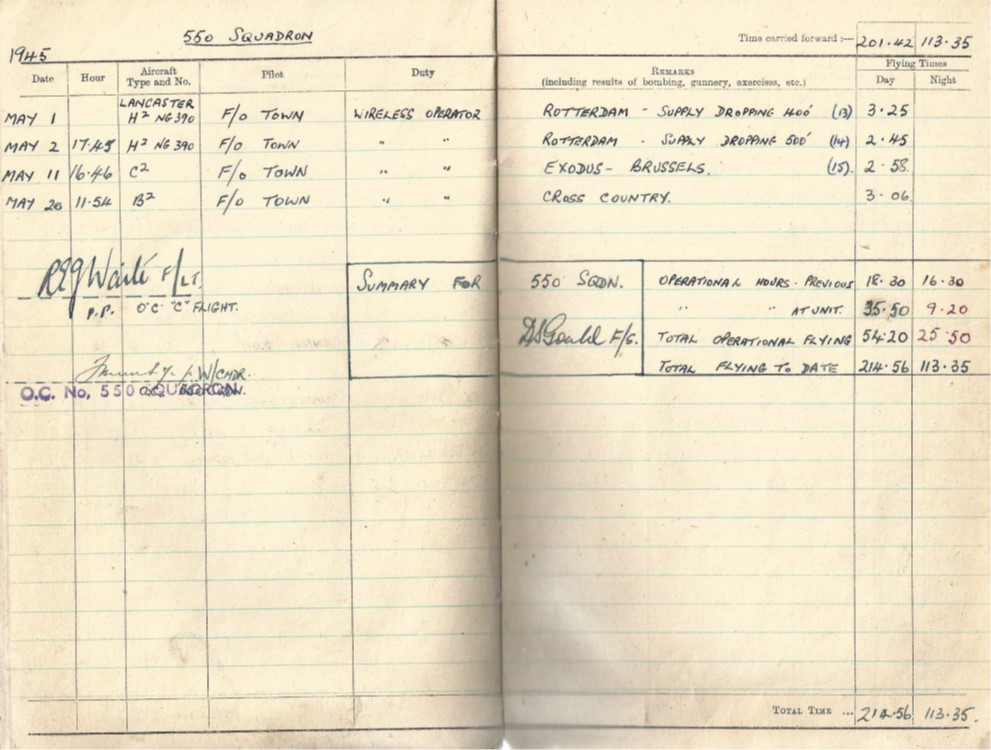 550 SQUADRON
Time carried forward :— 201·42 113·35
1945
Date Hour Aircraft Type and No. Pilot Duty REMARKS (including results of bombing, gunnery, exercises, etc.) Flying Times Day Night
MAY 1 LANCASTER H² NG390 F/O TOWN WIRELESS OPERATOR ROTTERDAM - SUPPLY DROPPING 400' (13) 3·25
MAY 2 17.45 H² NG390 F/O TOWN " " ROTTERDAM - SUPPLY DROPPING 500' (14) 2·45
MAY 11 16·46 C² F/O TOWN " " EXODUS - BRUSSELS. (15). 2·58
MAY 20 11·54 B² F/O TOWN " " CROSS COUNTRY. 3·06
Waite F/LT.
P.P. O.C. "C" FLIGHT.
SUMMARY FOR 550 SQDN. OPERATIONAL HOURS. PREVIOUS 18·30 16·30
" " AT UNIT. 35·50 9·20
DSGould F/S. TOTAL OPERATIONAL FLYING 54·20 25·50
TOTAL FLYING TO DATE 214·56 113·35
W/CMDR.
O.C. No. 550 SQUADRON.
TOTAL TIME ... 214·56 113·35.